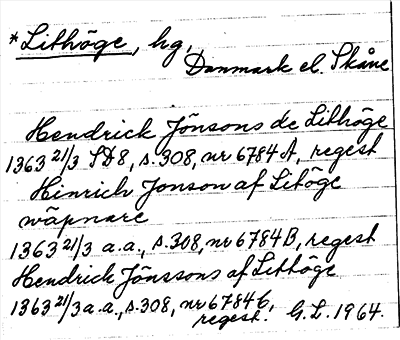 *Lithöge, hg,
Danmark el. Skåne
Hendrick Jönsons de Lithöge
1363 21/3 SD8, s.308, nr 6784 A, regest
Hinrich Jonson af Litöge
wäpnare
1363 21/3 a.a., s.308, nr 6784B, regest
Hendrick Jönssons af Lithöge
1363 21/3 a.a., s.308, nr 6784C,
regest. G.L. 1964.